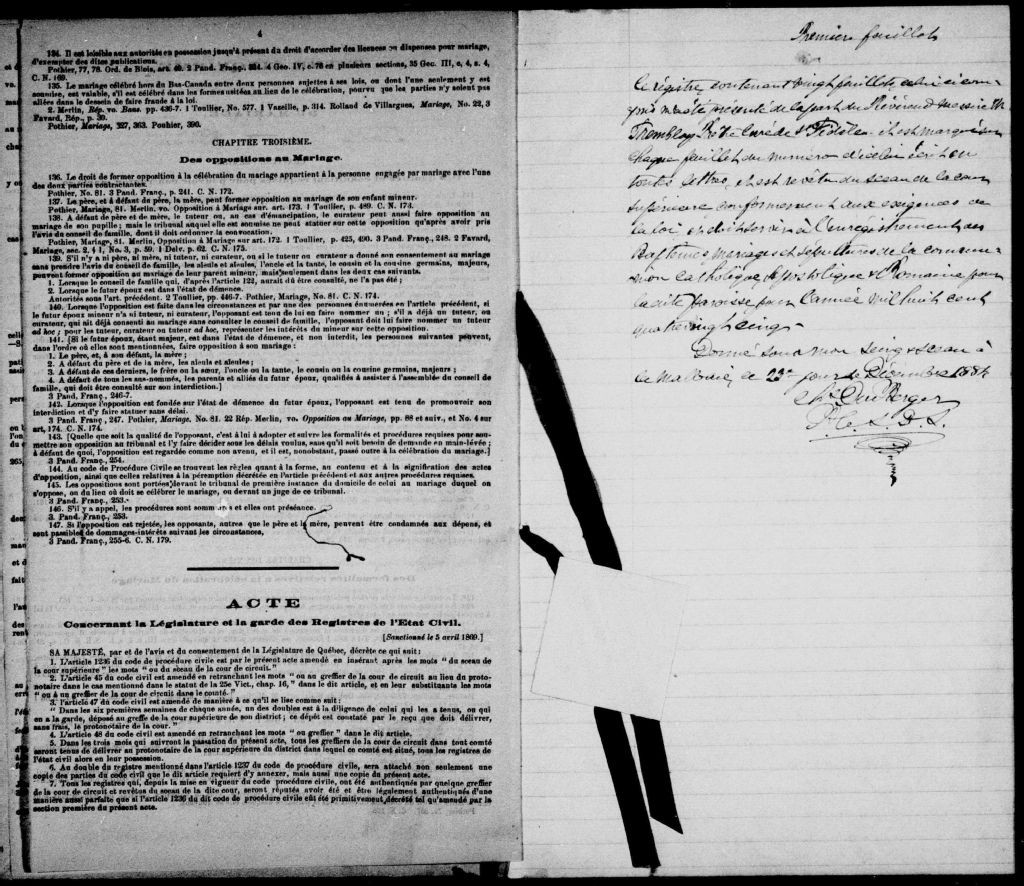 4
134. Il est loisible aux autorités en possession jusqu'à présent du droit d'accorder des licences ou dispenses pour mariage,
d'exempter des dites publications.
Pothier, 77, 78. Ord. de Blois, art. 40. 2 Pand. Franç. 4 Geo. IV, c. 78 en plusieurs sections, 35 Geo. III, c, 4, s. 4,
C. N. 169.
135. Le mariage célébré hors du Bas-Canada entre deux personnes sujettes à ses lois, ou dont l'une seulement y est
soumise, est valable, s'il est célébré dans les formes usitées au lieu de la célébration, pourvu que les parties n'y soient pas
allées dans le dessein de faire fraude à la loi.
2. Merlin, Rép. vo. Bans. pp. 436-7. 1 Toullier, No. 577. 1 Vazeille, p. 314. Rolland de Villargues, Mariage, No. 22, 3
Favard, Rép., p. 39.
Pothier, Mariage, 327, 363. Pouhier, 390.
CHAPITRE TROISIÈME.
Des oppositions au Mariage.
136. Le droit de former opposition à la célébration du mariage appartient à la personne engagée par mariage avec l'une
des deux parties contractantes.
Pothier, No. 81. 3 Pand. Franç., p. 241. C. N. 172.
137. Le père, et à défaut du père, la mère, peut former opposition au mariage de son enfant mineur.
Pothier, Mariage, 81. Merlin, vo. Opposition à Mariage sur. art. 173. 1 Toullier, p. 489. C. N. 173.
138. A défaut de père et de mère, le tuteur ou, au cas d'émancipation, le curateur peut aussi faire opposition au
mariage de son pupille; mais le tribunal auquel elle est soumise ne peut statuer sur cette opposition qu'après avoir pris
l'avis du conseil de famille, dont il doit ordonner la convocation.
Pothier, Mariage, 81. Merlin, Opposition à Mariage sur art. 172. 1 Toullier, p. 425, 490. 3 Pand. Franç., 248. 2 Favard,
Mariage, sec. 2. § 1, No. 3, p. 59. 1 Delv. p. 62. C. N. 175.
139. S'il n'y a ni père, ni mère, ni tuteur, ni curateur, ou si le tuteur ou curateur a donné son consentement au mariage
sans prendre l'avis du conseil de famille, les aïeuls et aïeules, l'oncle et la tante, le cousin et la cousine germains, majeurs,
peuvent former opposition au mariage de leur parent mineur, mais seulement dans les deux cas suivants.
1. Lorsque le conseil de famille qui, d'après l'article 122, aurait dû être consulté, ne l'a pas été;
2. Lorsque le futur époux est dans l'état de démence.
Autorités sous l'art. précédent. 2 Toullier, pp. 446-7. Pothier, Mariage, No. 81. C. N. 174.
140. Lorsque l'opposition est faite dans les circonstances et par une des personnes énumérées en l'article précédent, si
le futur époux mineur n'a ni tuteur, ni curateur, l'opposant est tenu de lui en faire nommer un; s'il a déjà un tuteur, ou
curateur, qui ait déjà consenti au mariage sans consulter le conseil de famille, l'opposant doit lui faire nommer un tuteur
ad hoc; pour les tuteur, curateur ou tuteur ad hoc, représenter les intérêts du mineur sur cette opposition.
141. [Si le futur époux, étant majeur, est dans l'état de démence, et non interdit, les personnes suivantes peuvent,
dans l'ordre où elles sont mentionnées, faire opposition à son mariage:
1. Le père, et, à son défaut, la mère;
2. A défaut du père et de la mère, les aïeuls et aïeules;
3. A défaut de ces derniers, le frère ou la sœur, l'oncle ou la tante, le cousin ou la cousine germains, majeurs;
4. A défaut de tous les sus-nommés, les parents et alliés du futur époux, qualifiés à assister à l'assemblée du conseil de
famille, qui doit être consulté sur son interdiction.]
3 Pand. Franç., 246-7.
142. Lorsque l'opposition est fondée sur l'état de démence du futur époux, l'opposant est tenu de promouvoir son
interdiction et d'y faire statuer sans délai.
3 Pand. Franç., 247. Pothier, Mariage. No. 81. 22 Rép Merlin, vo. Opposition au Mariage, pp. 88 et suiv., et No. 4 sur
art. 174. C. N. 174.
143. [Quelle que soit la qualité de l'opposant, c'est à lui à adopter et suivre les formalités et procédures requises pour soumettre
son opposition au tribunal et l'y faire décider sous les délais voulus, sans qu'il soit besoin de demande en main-levée;
à défaut de quoi, l'opposition est regardée comme non avenu, et il est, nonobstant, passé outre à la célébration du mariage.]
3 Pand. Franç., 254.
144. Au code de Procédure Civile se trouvent les règles quant à la forme, au contenu et à la signification des actes
d'opposition, ainsi que celles relatives à la péremption décrétée en l'article précédent et aux autres procédures requises.
145. Les oppositions sont portées devant le tribunal de première instance du domicile de celui au mariage duquel on
s'oppose, ou du lieu où doit se célébrer le mariage, ou devant un juge de ce tribunal.
3 Pand. Franç., 253.
146. S'il y a appel, les procédures sont et elles ont préséance.
3 Pand. Franç., 253.
147. Si l'opposition est rejetée, les opposants, autres que le père et la mère, peuvent être condamnés aux dépens, et
sont passibles de dommages-intérêts suivant les circonstances,
3 Pand. Franç., 255-6. C. N. 179.
ACTE
Concernant la Législature et la garde des Registres de l'Etat Civil.
[Sanctionné le 5 avril 1869.]
SA MAJESTÉ, par et de l'avis et du consentement de la Législature de Québec, décrète ce qui suit:
1. L'article 1236 du code de procédure civile est par le présent acte amendé en insérant après les mots "du sceau de
la cour supérieure" les mots "ou du sceau de la cour de circuit."
2. L'article 45 du code civil est amendé en retranchant les mots "ou au greffier de la cour de circuit au lieu du protonotaire
dans le cas mentionné dans le statut de la 25e Vict., chap. 16," dans le dit article, et en leur substituants les mots
"ou à un greffier de la cour de circuit dans le comté."
3. l'article 47 du code civil est amendé de manière à ce qu'il se lise comme suit:
"Dans les six premières semaines de chaque année, un des doubles est à la diligence de celui qui les a tenus, ou qui
en a la garde, déposé au greffe de la cour supérieure de son district; ce dépôt est constaté par le reçu que doit délivrer,
sans frais, le protonotaire de la cour."
4. L'article 48 du code civil est amendé en retranchant les mots "ou greffier" dans le dit article.
5. Dans les trois mois qui suivront la passation du présent acte, tous les greffiers de la cour de circuit dans tout comté
seront tenus de délivrer au protonotaire de la cour supérieure du district dans lequel ce comté est situé, tous les registres de
l'état civil alors en leur possession.
6. Au double du registre mentionné dans l'article 1237 du code de procédure civile, sera attaché non seulement une
copie des parties du code civil que le dit article requiert d'y annexer, mais aussi une copie du présent acte.
7. Tous les registres qui, depuis la mise en vigueur du code procédure civile, ont été authentiqués par quelque greffier
de la cour de circuit et revêtus du sceau de la dite cour, seront réputés avoir été et être légalement authentiqués d'une
manière aussi parfaite que si l'article 1236 du dit code de procédure civile eût été primitivement décrété tel qu'amendé par la
section première du présent acte.
Premier feuillet
Ce régistre contenant vingt feuillets celui ci compris
m'a été présenté de la part du Révérend
Tremblay Ptre Curé de St Fidèle et est marqué sur
chaque feuillet du numéro d'icelui écrit en
toutes lettres, et est revêtu du sceau de la cour
supérieure conformement aux exigences de
la loi et doit servir à l'enregistrement des
Baptêmes mariages et sépultures de la communion
catholique, Apostolique & Romaine pour
la dite paroisse pour l'année mil huit cent
quatre vingt cinq.
Donné sous mon seing & sceau à
la Malbaie, ce 23e jour de Décembre 1884
P. C. S. D. S.